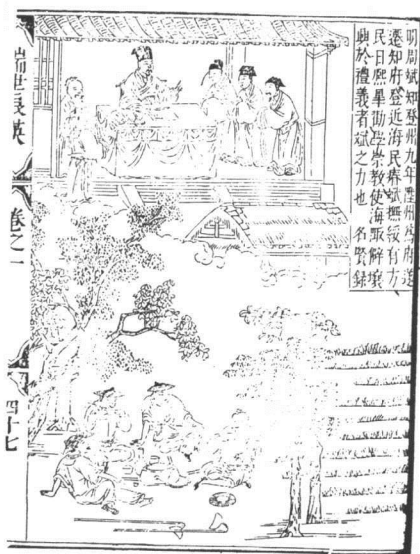 明周斌知登州九年陞府
遷知府登近海民瘠斌撫綏有方
民日熙皞勸學崇教使海解
興於禮義者斌之力也 名賢錄
瑞世良英
卷之一
四十七